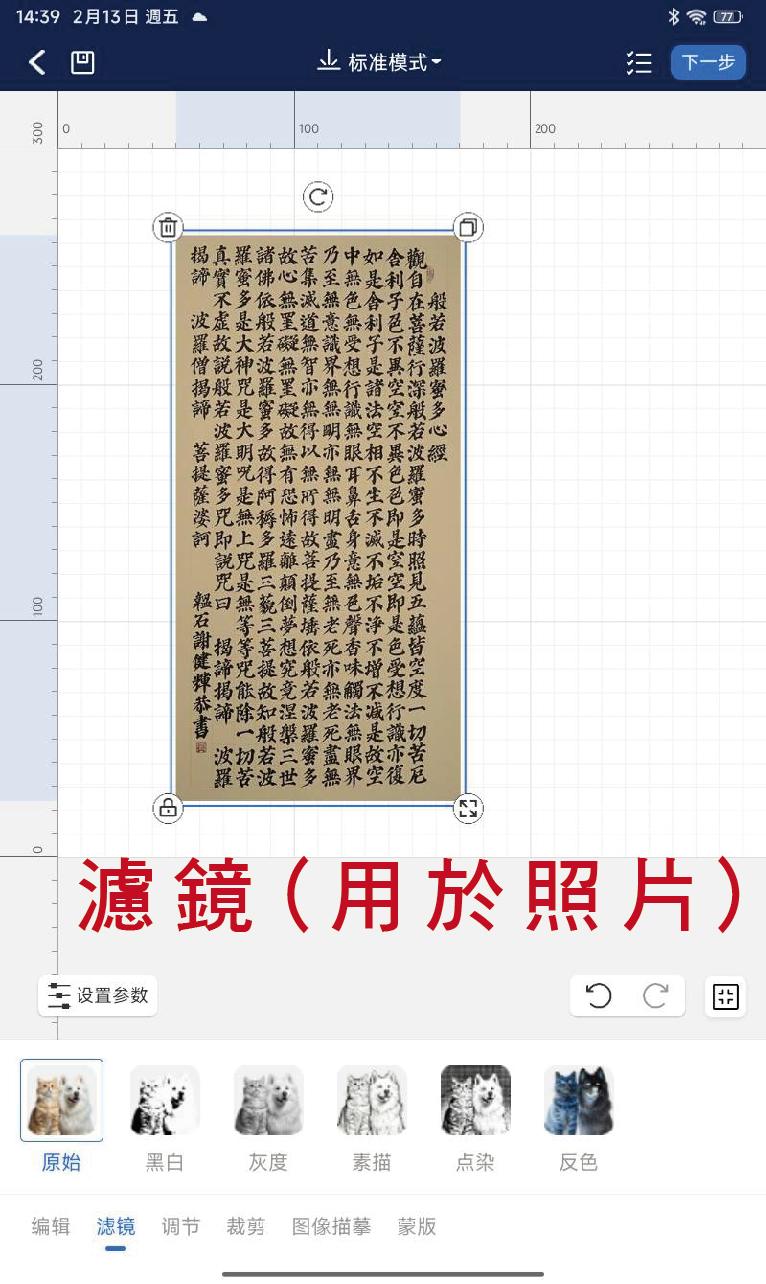 14:39 2月13日 週五
77
标准模式
下一步
0 100 200
300
200
100
0
般若波羅蜜多心經
觀自在菩薩行深般若波羅蜜多時照見五蘊皆空度一切苦厄
舍利子色不異空空不異色色即是空空即是色受想行識亦復
如是舍利子是諸法空相不生不滅不垢不淨不增不減是故空
中無色無受想行識無眼耳鼻舌身意無色聲香味觸法無眼界
乃至無意識界無無明亦無無明盡乃至無老死亦無老死盡無
苦集滅道無智亦無得以無所得故菩提薩埵依般若波羅蜜多
故心無罣礙無罣礙故無有恐怖遠離顛倒夢想究竟涅槃三世
諸佛依般若波羅蜜多故得阿耨多羅三藐三菩提故知般若波
羅蜜多是大神咒是大明咒是無上咒是無等等咒能除一切苦
真實不虛故說般若波羅蜜多咒即說咒曰 揭諦揭諦 波羅
揭諦 波羅僧揭諦 菩提薩婆訶 石謝健輝恭書
濾鏡(用於照片)
设置参数
原始 黑白 灰度 素描 点染 反色
编辑 滤镜 调节 裁剪 图像描摹 蒙版